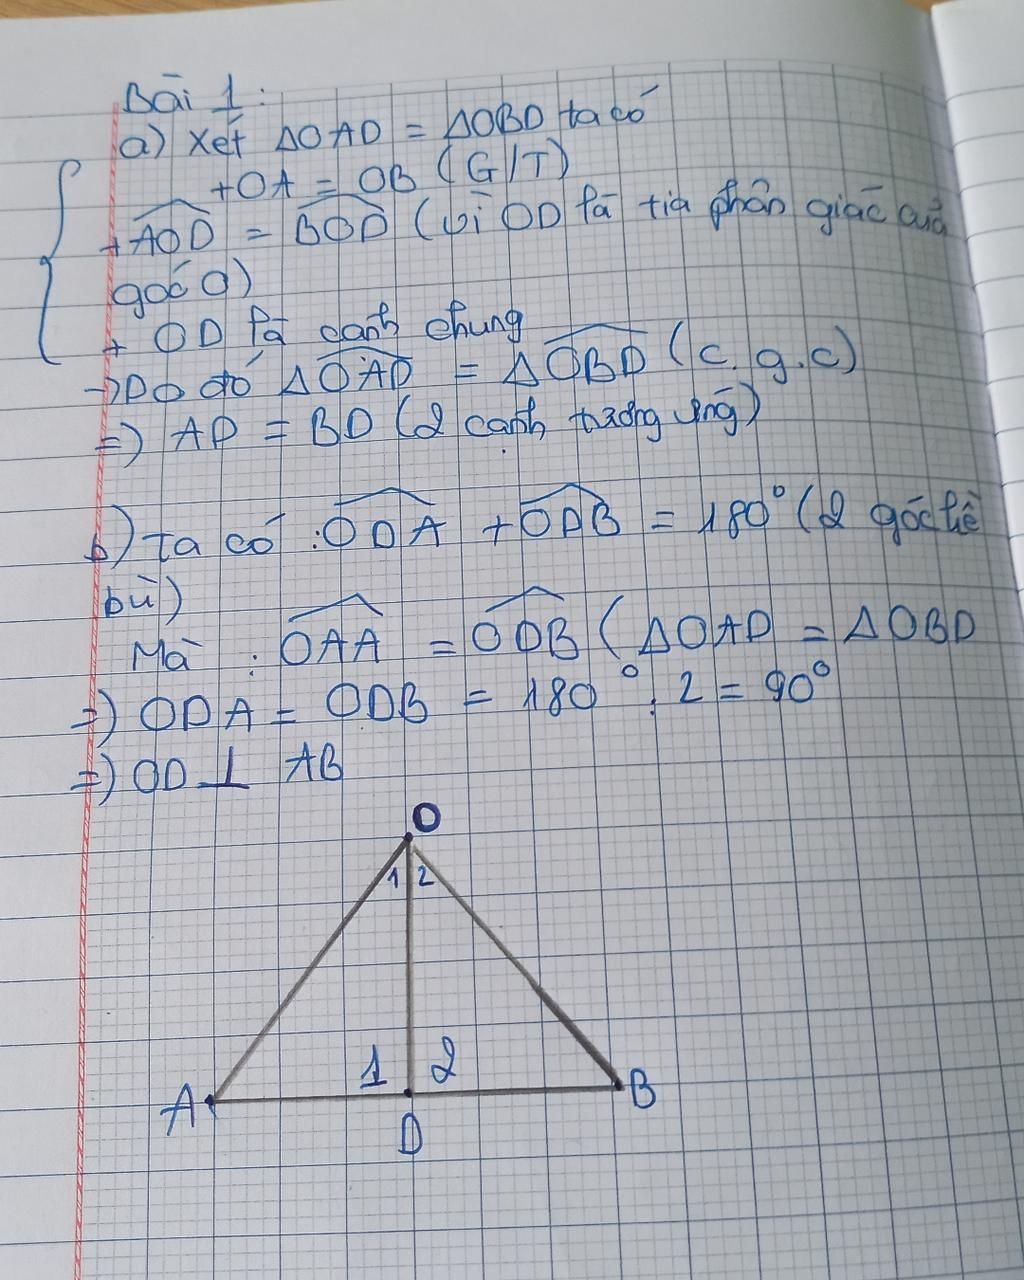 Bài 1:
a) Xét ΔOAD = ΔOBD ta có
+OA = OB (G/T)
+ \widehat{AOD} = \widehat{BOD} (vì OD là tia phân giác của
góc O)
+ OD là cạnh chung
→Do đó Δ\widehat{OAD} = Δ\widehat{OBD} (c.g.c)
=) AD = BD (2 cạnh tương ứng)
b) Ta có : \widehat{ODA} + \widehat{ODB} = 180° (2 góc kề
bù)
Mà : \widehat{OAA} = \widehat{ODB} (ΔOAD = ΔOBD
=) ODA = ODB = 180° : 2 = 90°
=) OD ⊥ AB
O
1 2
1 2
A B
D